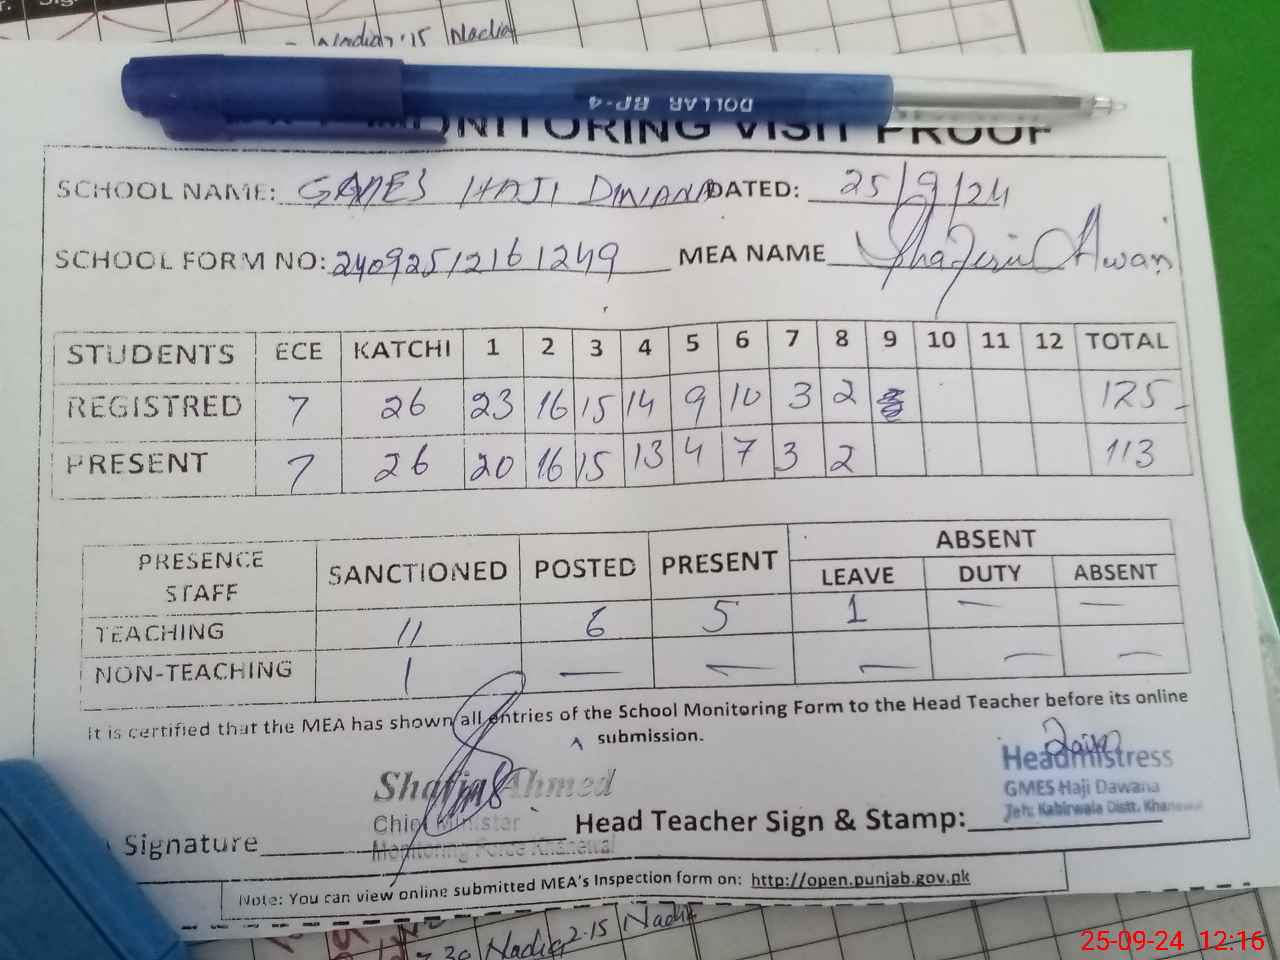 Nadia 2:15 Nadia
DOLLAR BP-4
MONITORING VISIT PROOF
SCHOOL NAME: GMES HAJI DIWANA DATED: 25/9/24
SCHOOL FORM NO: 24092512161249 MEA NAME Awan
STUDENTS ECE KATCHI 1 2 3 4 5 6 7 8 9 10 11 12 TOTAL
REGISTRED 7 26 23 16 15 14 9 10 3 2 125
PRESENT 7 26 20 16 15 13 4 7 3 2 113
PRESENCE STAFF SANCTIONED POSTED PRESENT ABSENT
LEAVE DUTY ABSENT
TEACHING 11 6 5 1 — —
NON-TEACHING 1 — — — — —
It is certified that the MEA has shown all entries of the School Monitoring Form to the Head Teacher before its online
submission.
Shafiq Ahmed
Chief Minister
Monitoring Force Khanewal
Headmistress
GMES Haji Dawana
Teh: Kabirwala Distt. Khanewal
Signature Head Teacher Sign & Stamp:
Note: You can view online submitted MEA's Inspection form on: http://open.punjab.gov.pk
Nadia 2.15 Nadia
25-09-24 12:16